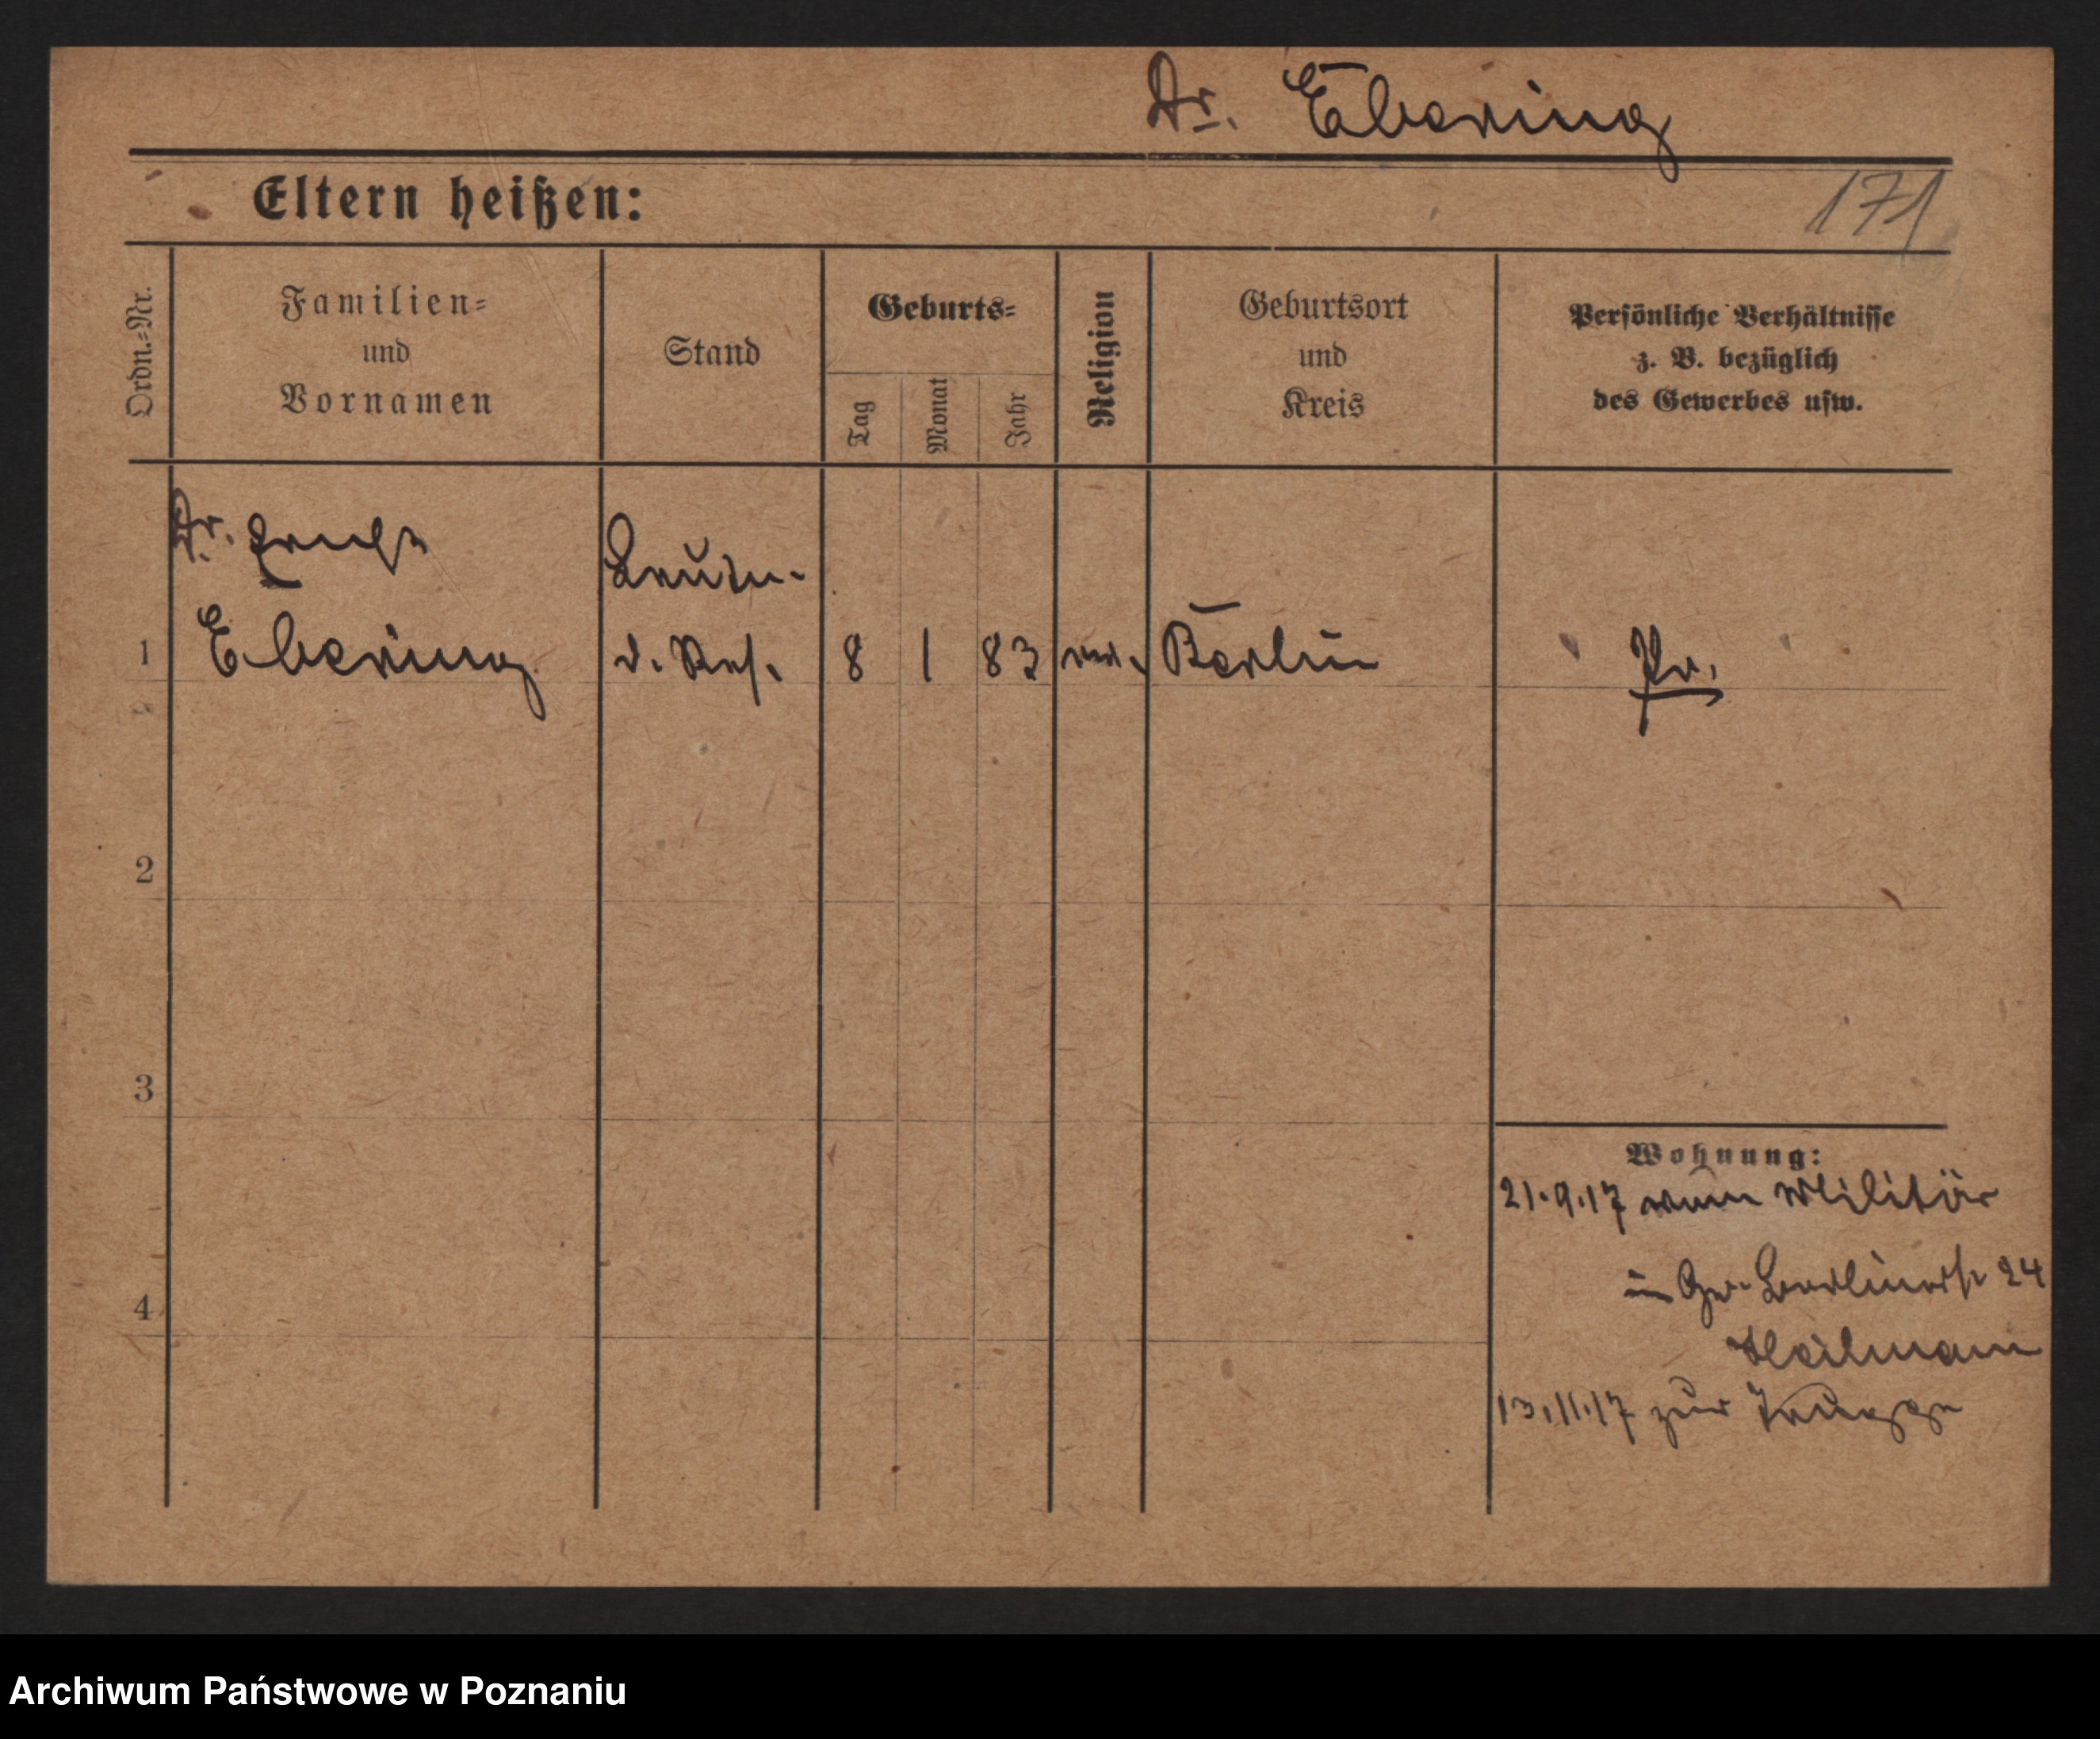 Dr. Ebering
Eltern heißen:
171
Ordn.-Nr.
Familien-
und
Vornamen
Stand
Geburts-
Tag
Monat
Jahr
Religion
Geburtsort
und
Kreis
Persönliche Verhältnisse
z. B. bezüglich
des Gewerbes usw.
Dr. Ernst
Ebering
Leutn.
d. Res.
1
8
1
83
Berlin
Pr.
2
3
4
Wohnung:
21.9.17 vom Militär
in Berlinerstr 24
Heilmann
13.11.17 zur Truppe
Archiwum Państwowe w Poznaniu